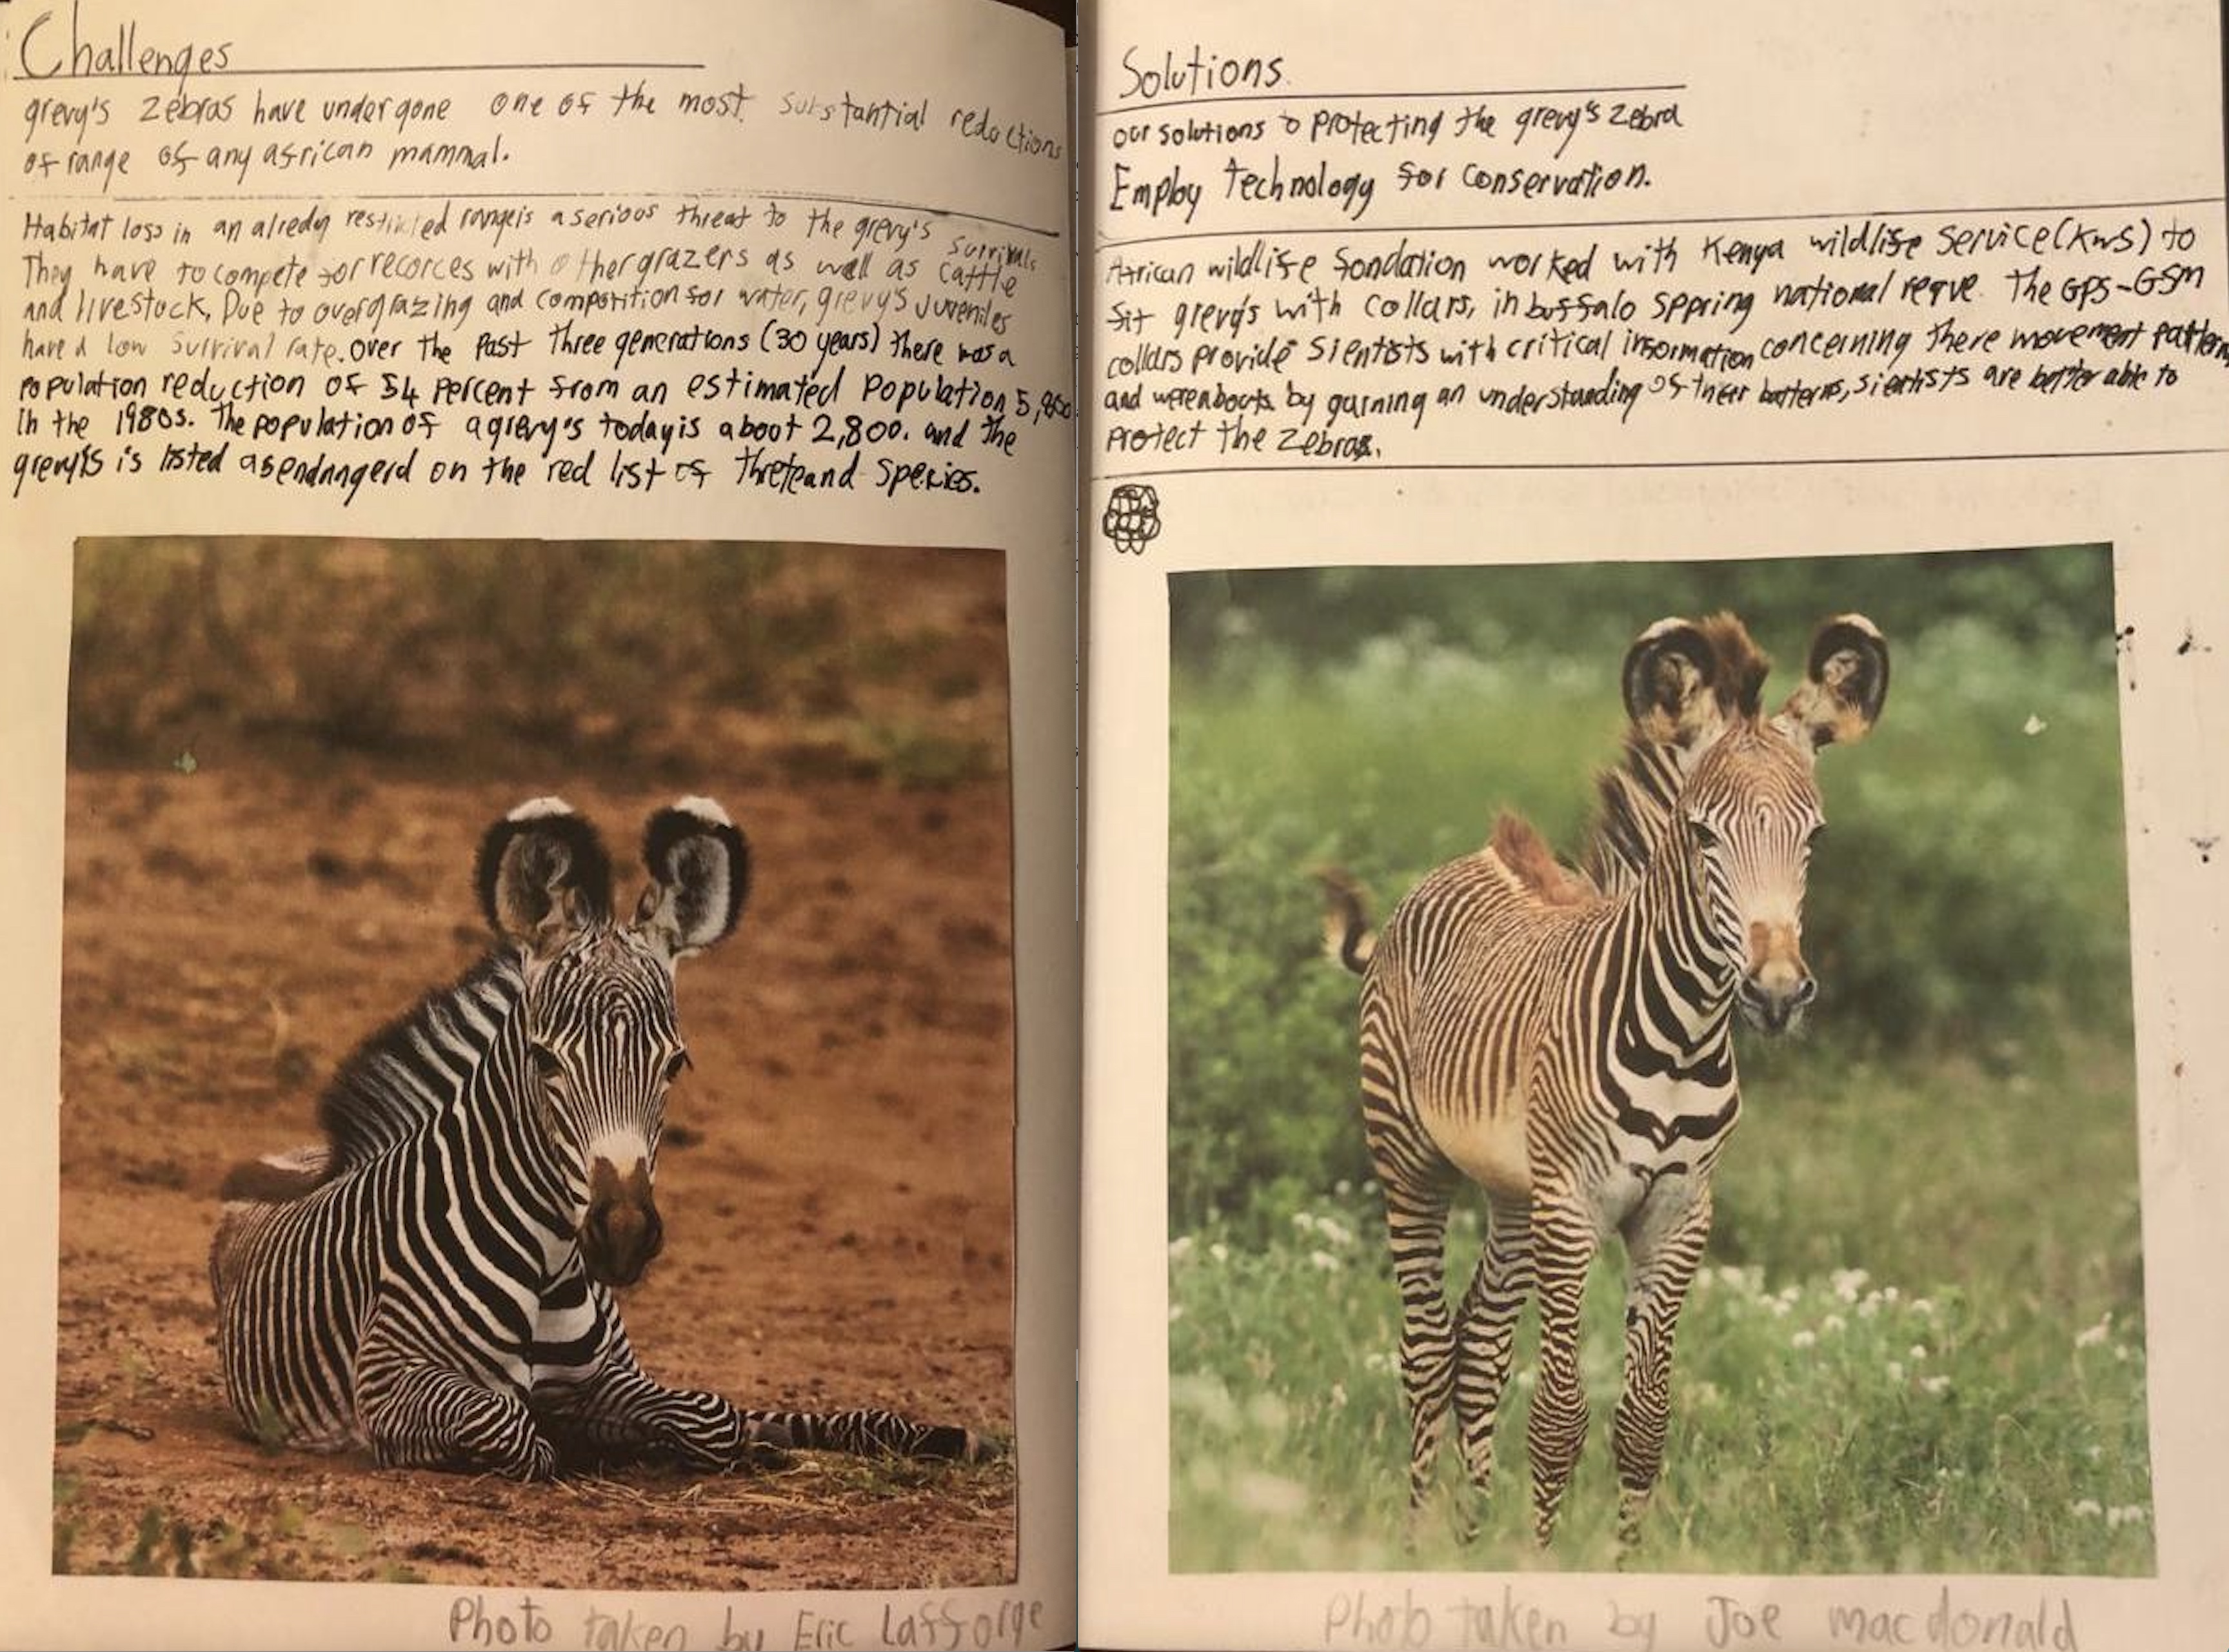 Challenges
grevy's zebras have undergone one of the most substantial reductions
of range of any african mammal.
Habitat loss in an alredy restricted range is a serious threat to the grevy's survivals
They have to compete for recorces with other grazers as well as cattle
and livestock, Due to overgrazing and compotition for water, grevy's juveniles
have a low survival rate. over the Past three generations (30 years) there was a
population reduction of 54 percent from an estimated population 5,800
in the 1980s. The population of a grevy's today is about 2,800. and the
grevy's is listed as endangerd on the red list of threteand species.
Photo taken by Eric Lafforge
Solutions
our solutions to protecting the grevy's zebra
Employ technology for conservation.
African wildlife fondation worked with Kenya wildlife service (KWS) to
fit grevy's with collars, in buffalo sppring national reqve. The GPS-GSM
collars provide sientists with critical information concerning there movement pattern
and werenboots by garning an understanding of their batterns, sientists are better able to
protect the zebras.
Photo taken by Joe macdonald